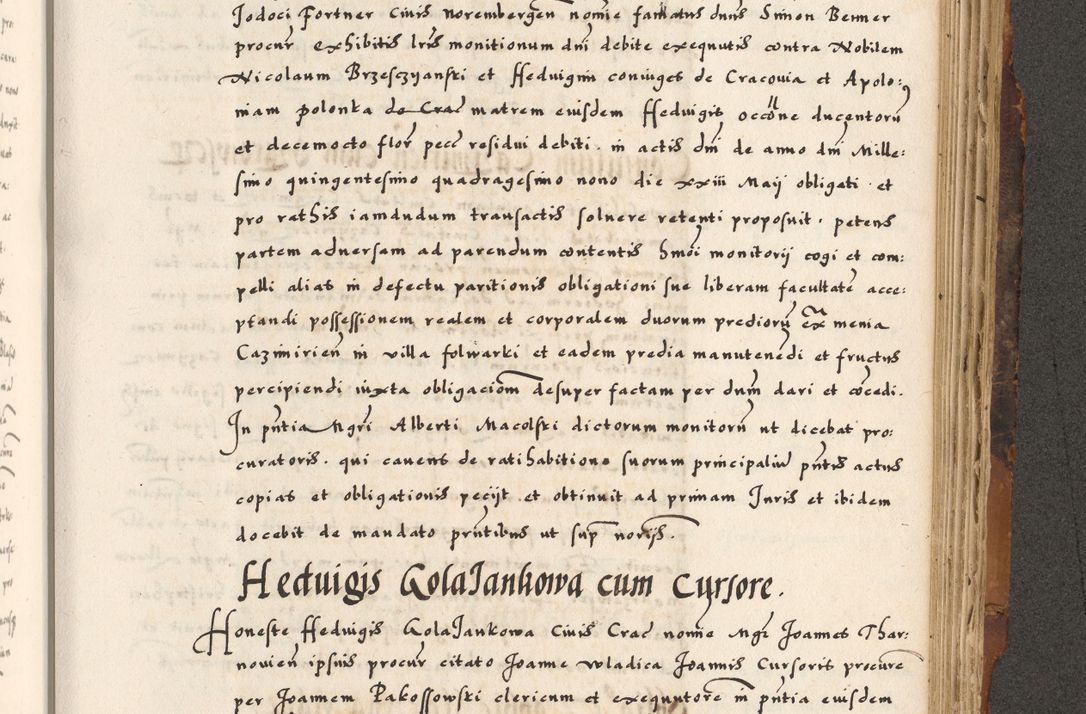 Jodoci Fortner Ciuis Norembergen̄ noīe famatus dn̄s Simon Benner
procur̄ exhibitis lr̄is monitionum dn̄i debite exequutis contra Nobilem
Nicolaum Brzesczyanski et Heduigim coniuges de Cracouia et Apolo:
niam polonka de Crac̄ matrem eiusdem Heduigis occōne ducentorū
et decemocto flor̄ pecc̄ residui debiti. in actis dn̄i de anno dn̄i Mille:
simo quingentesimo quadragesimo nono die xxiii Maij obligati et
pro rathis iamdudum transactis soluere retenti proposuit. petens
partem aduersam ad parendum contentis hmōi monitorij cogi et com:
pelli alias in defectu paritionis obligationi sue liberam facultatē acce:
ptandi possessionem realem et corporalem duorum prediorū ex menia
Cazimirien̄ in villa folwarki et eadem predia manutenēdi et fructus
percipiendi iuxta obligaciom̄ desuper factam per dn̄m dari et cōcedi.
In pn̄tia Mgr̄i Alberti Macolski dictorum monitorū ut dicebat pro:
curatoris. qui cauens de ratihabitione suorum principaliū pn̄tis actus
copias et obligationis petijt et obtinuit ad primam Juris et ibidem
docebit de mandato pn̄tibus ut sup̄ norijs.
Heduigis GolaJankowa cum Cursore.
Honeste Heduigis GolaJankowa Ciuis Crac̄ noīe Mgr̄ Joannes Thar:
nouien̄ ipsius procur̄ citato Joanne Wladica Joannis Cursoris procurē
per Joannem Pakossowski clericum et exequutorē in pn̄tia eiusdem